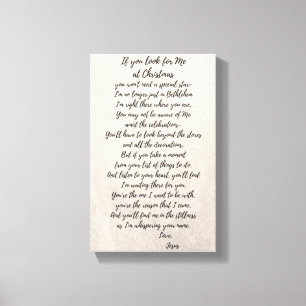 If you Look for Me
at Christmas
you won't need a special star-
I'm no longer just in Bethlehem
I'm right there where you are.
You may not be aware of Me
amid the celebrations-
You'll have to look beyond the stores
and all the decorations.
But if you take a moment
from your list of things to do.
And listen to your heart, you'll find
I'm waiting there for you.
You're the one I want to be with,
you're the reason that I came,
And you'll find me in the stillness
as I'm whispering your name.
Love,
Jesus